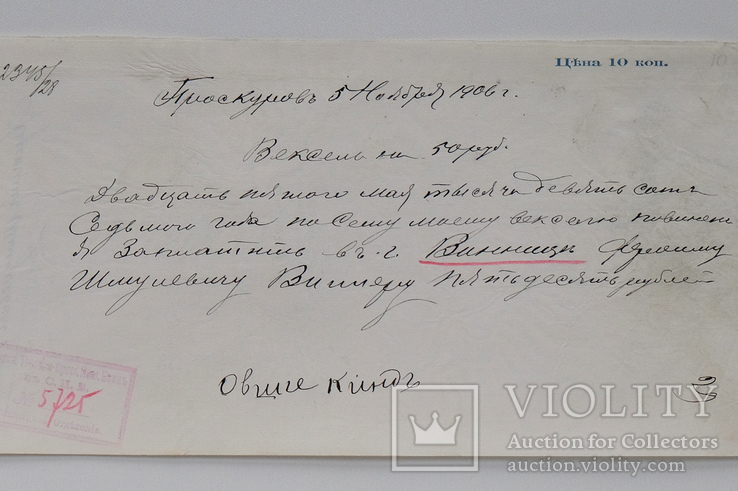 2345/28
Цѣна 10 коп.
10
Проскуровъ 5 Ноября 1906 г.
Вексель на 50 руб.
Двадцать пятого мая тысяча девять сотъ
Седьмого года по сему моему векселю повиненъ
я Заплатить въ г. Винницѣ
Шмулевичу Виглеру пятьдесять рублей
5725
Овшіе Киндъ
VIOLITY
Auction for Collectors
auction.violity.com